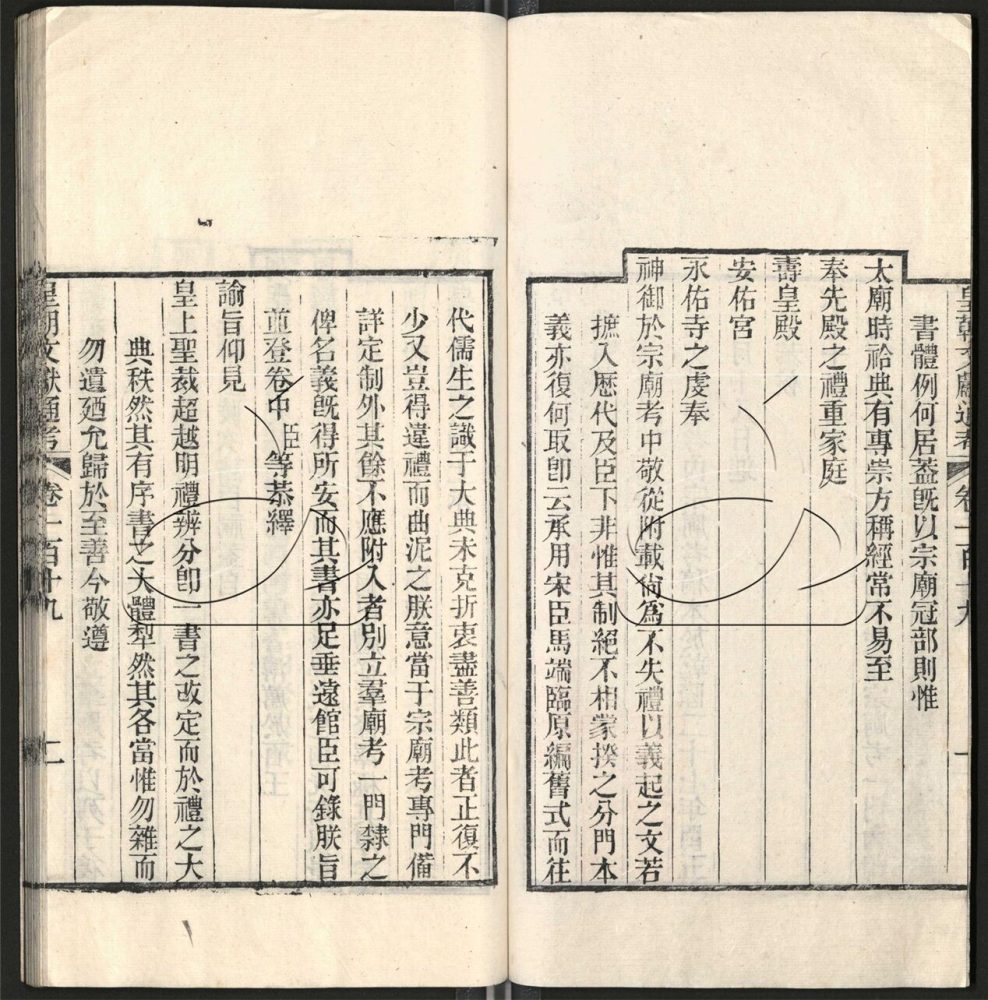 書體例何居葢旣以宗廟冠部則惟
太廟時祫典有專崇方稱經常不易至
奉先殿之禮重家庭
壽皇殿
安佑宮
永佑寺之虔奉
神御於宗廟考中敬從附載尙爲不失禮以義起之文若
摭入歴代及臣下非惟其制絕不相蒙揆之分門本
義亦復何取卽云承用宋臣馬端臨原編舊式而往
代儒生之識于大典未克折衷盡善類此者正復不
少又豈得違禮而曲泥之朕意當于宗廟考專門備
詳定制外其餘不應附入者別立羣廟考一門隸之
俾名義旣得所安而其書亦足垂遠館臣可錄朕旨
並登卷中臣等恭繹
諭旨仰見
皇上聖裁超越明禮辨分卽一書之改定而於禮之大
典秩然其有序書之大體犁然其各當惟勿雜而
勿遺廼允歸於至善今敬遵
皇朝文獻通考 卷一百十九 二